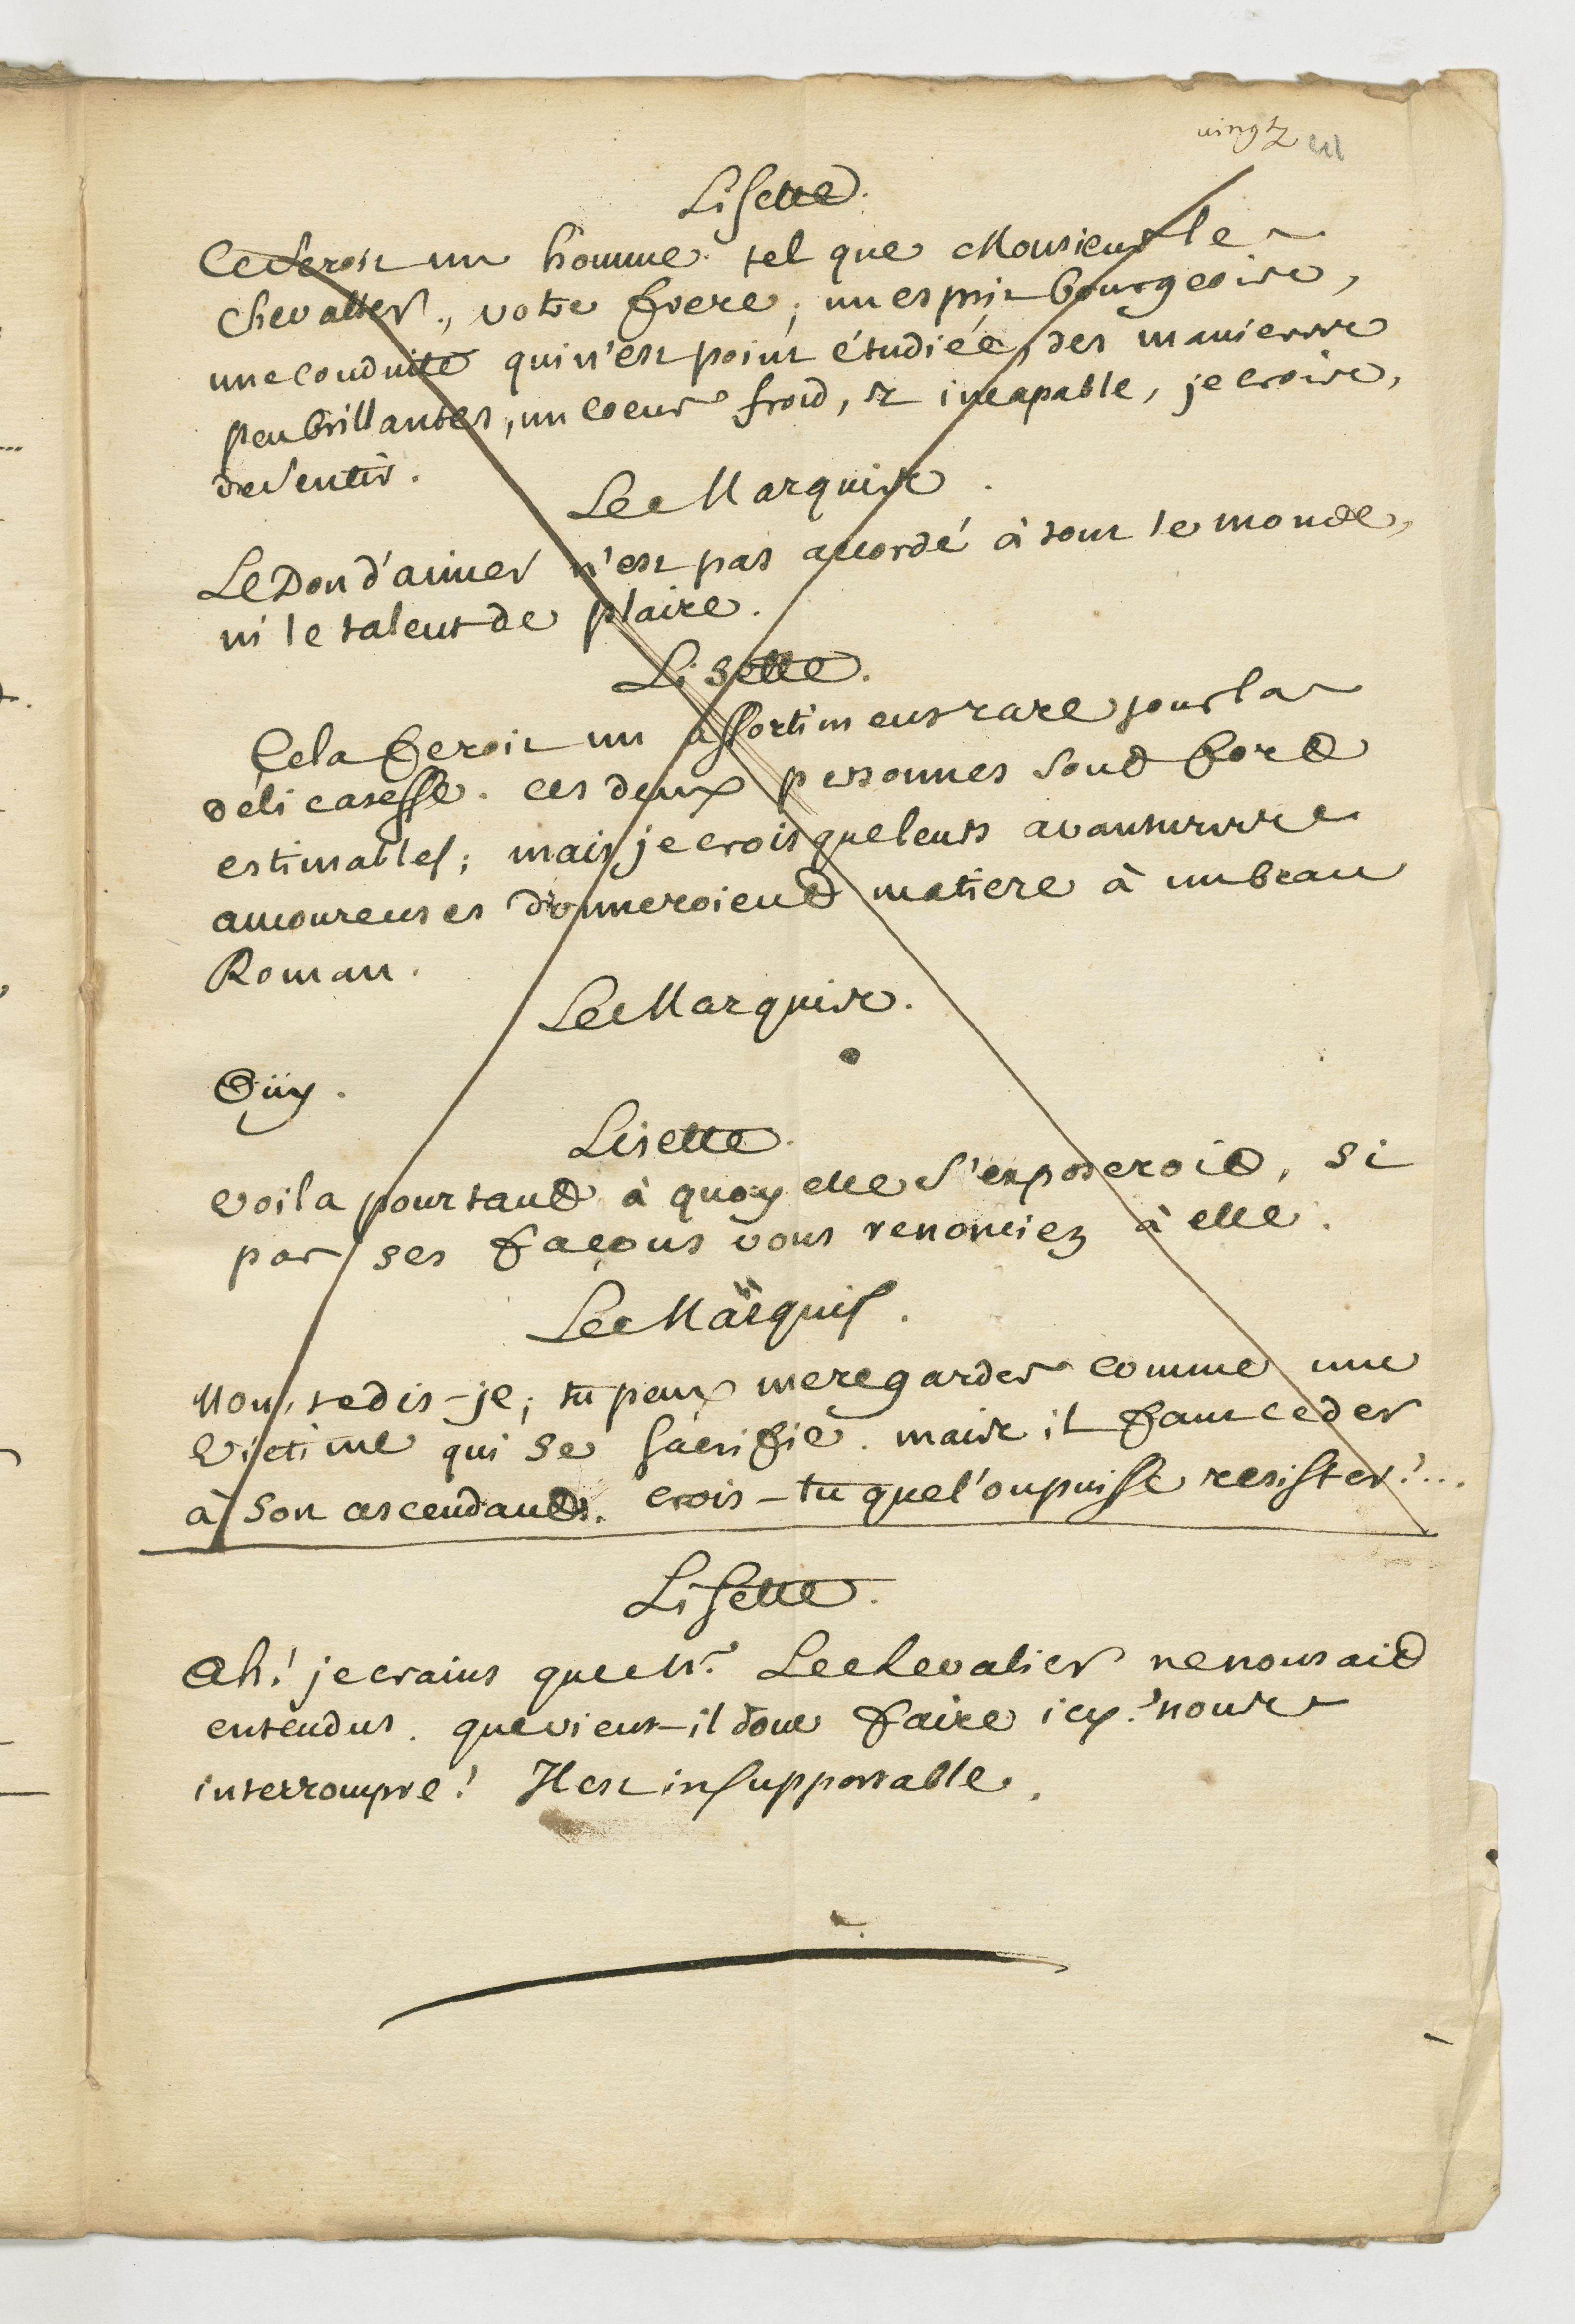 vingt
Lisette.
Ce seroit un homme tel que Monsieur le
chevallier, votre frere; un esprit bourgeois,
une conduite qui n'est point étudiée, des manieres
peu brillantes, un coeur froid, & incapable, je crois,
de sentir.
Le Marquis.
Le Don d'aimer n'est pas accordé à tout le monde,
ni le talent de plaire.
Lisette.
Cela feroit un assortiment rare pour la
délicatesse. ces deux personnes sont fort
estimables; mais je crois que leurs avantures
amoureuses donneroient matiere à un beau
Roman.
Le Marquis.
Oüy.
Lisette.
voila pourtant à quoy elle s'exposeroit, si
par ses façons vous renonciez à elle.
Le Marquis.
Non, te dis-je; tu peux me regarder comme une
victime qui se sacrifie. mais il faut ceder
à son ascendant. crois-tu que l'on puisse resister?...
Lisette.
Ah! je crains que Mr. Le chevalier ne nous ait
entendus. que vient-il donc faire icy? nous
interrompre! Il est insupportable.